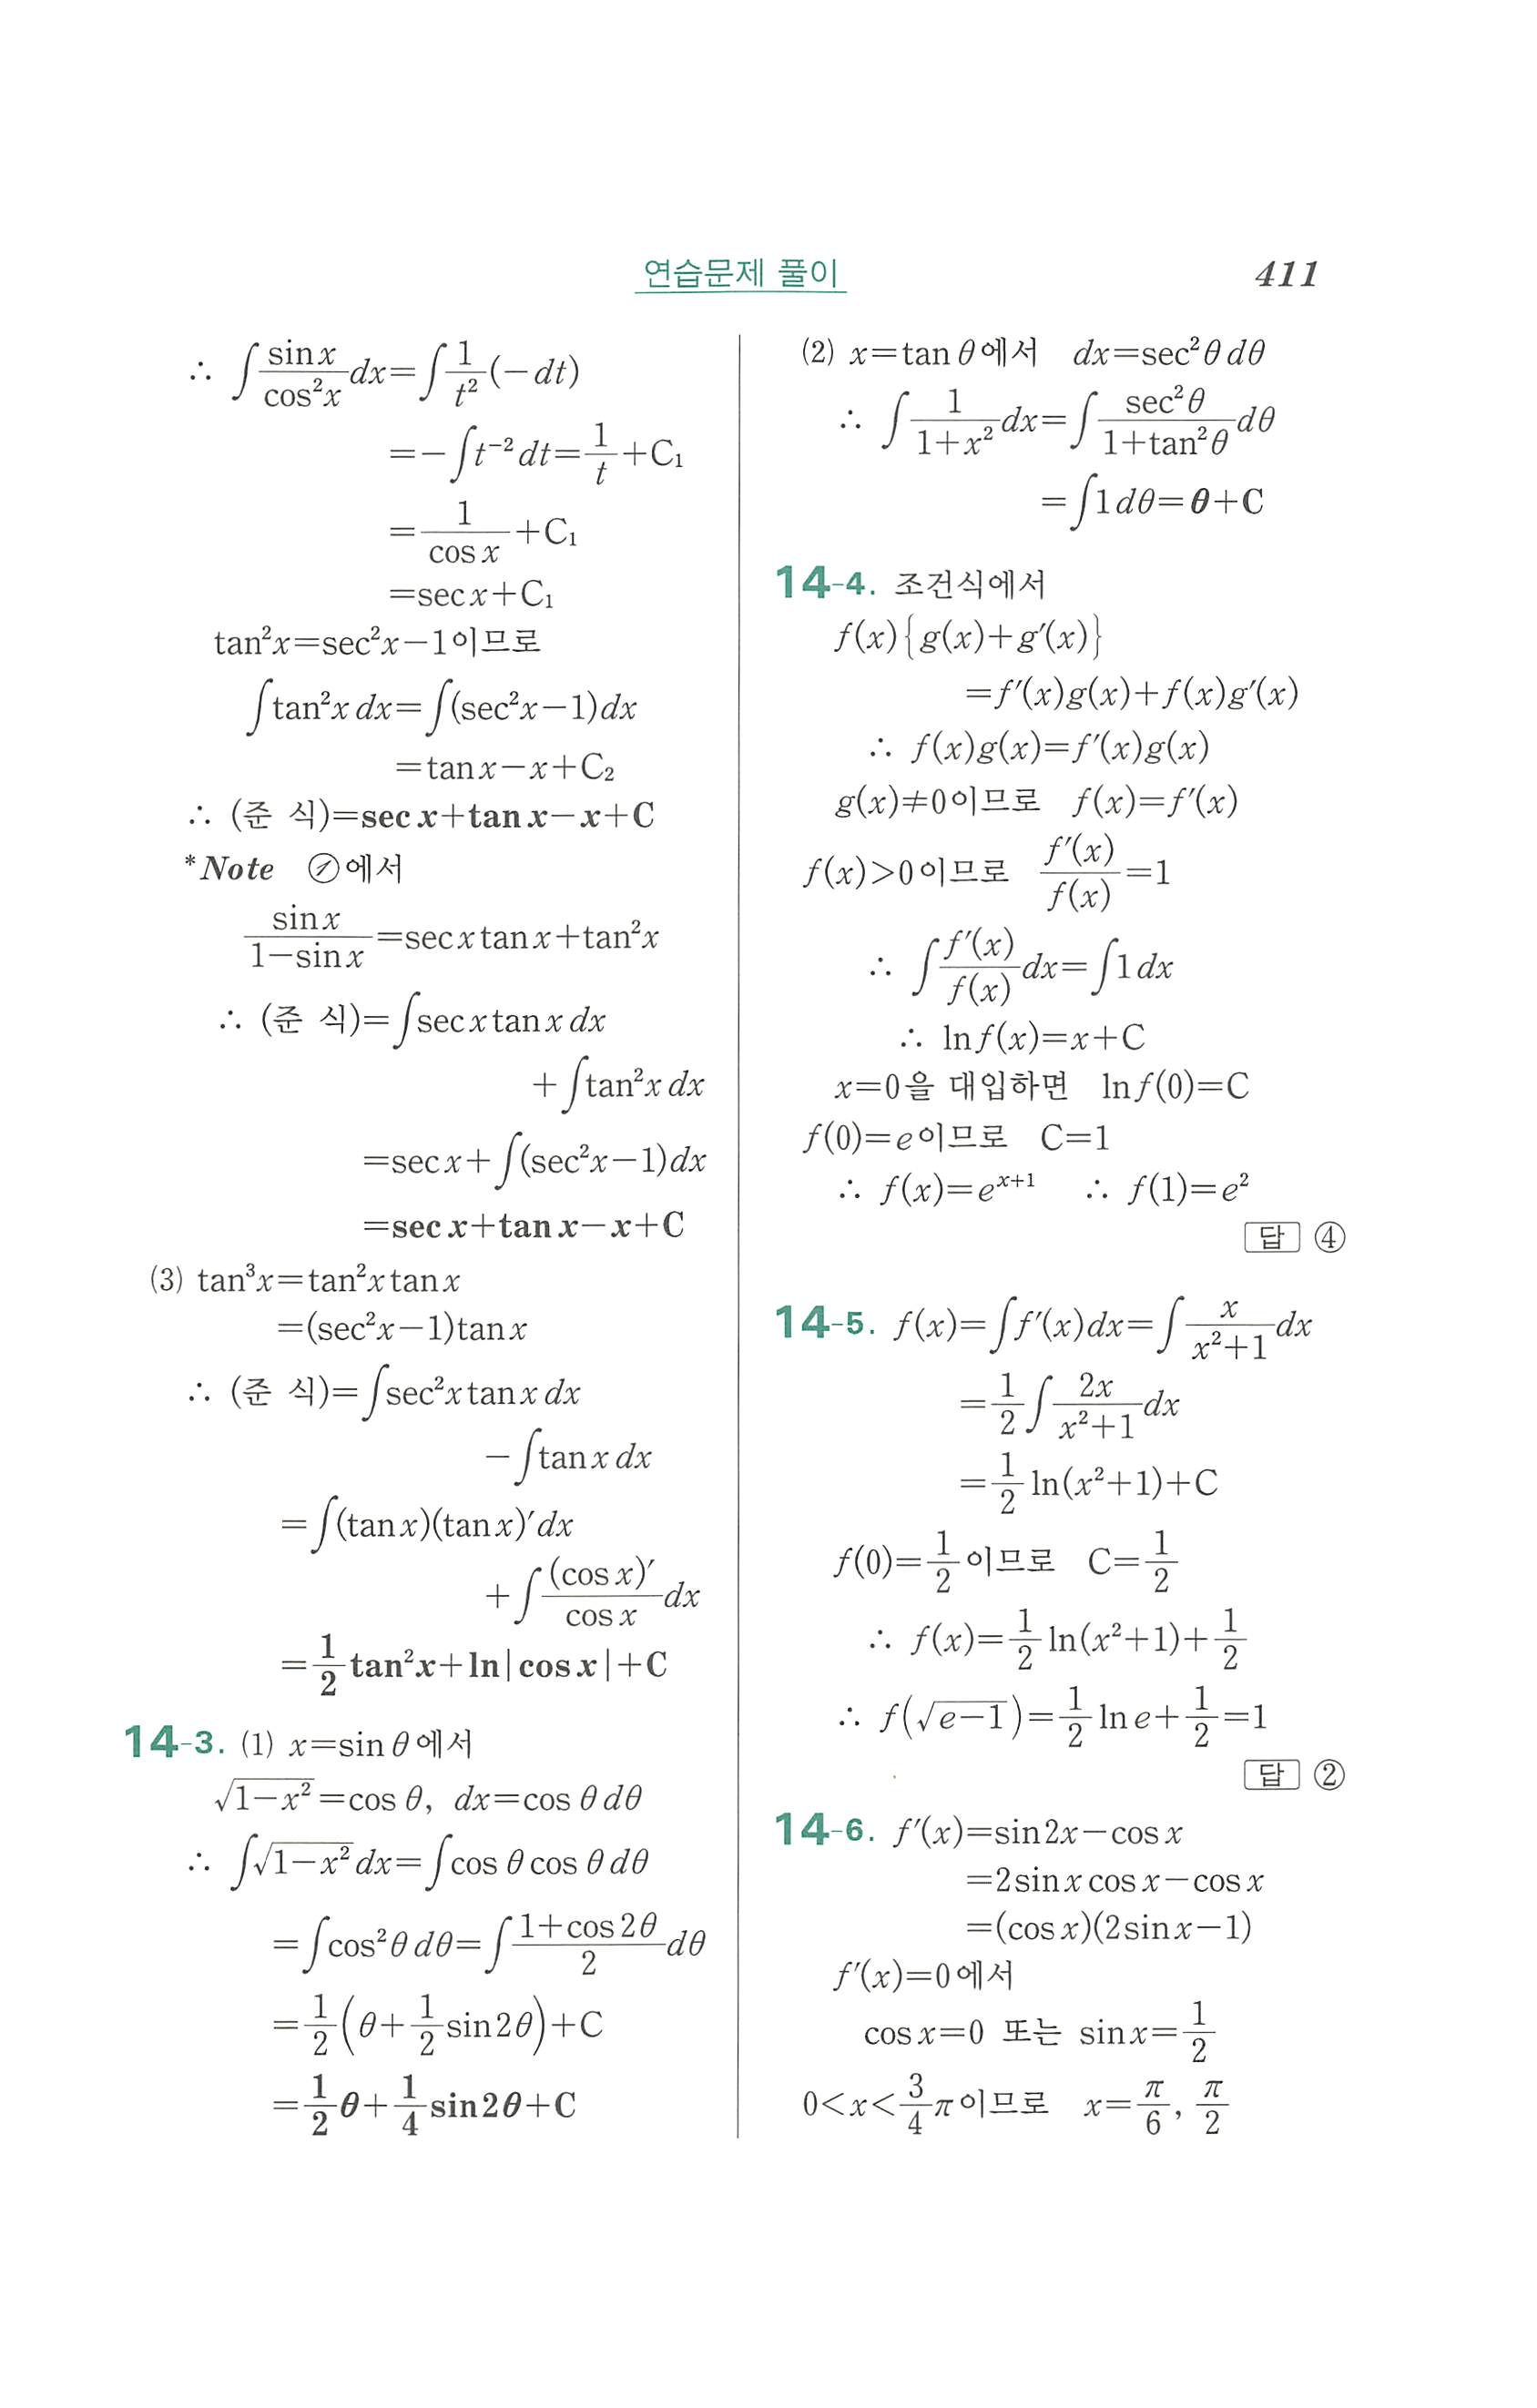 연습문제 풀이
411
∴ ∫ sinx/cos²x dx=∫ 1/t² (−dt)
=−∫t⁻²dt=1/t+C₁
=1/cos x+C₁
=secx+C₁
tan²x=sec²x−1이므로
∫tan²x dx=∫(sec²x−1)dx
=tanx−x+C₂
∴ (준 식)=sec x+tan x−x+C
*Note ㉮에서
sinx/(1−sinx)=secxtanx+tan²x
∴ (준 식)=∫secxtanx dx
+∫tan²x dx
=secx+∫(sec²x−1)dx
=sec x+tan x−x+C
(3) tan³x=tan²xtanx
=(sec²x−1)tanx
∴ (준 식)=∫sec²xtanx dx
−∫tanx dx
=∫(tanx)(tanx)′dx
+∫ (cos x)′/cos x dx
=1/2 tan²x+ln|cos x|+C
14-3. (1) x=sin θ에서
√(1−x²)=cos θ, dx=cos θ dθ
∴ ∫√(1−x²) dx=∫cos θ cos θ dθ
=∫cos²θ dθ=∫ (1+cos2θ)/2 dθ
=1/2(θ+1/2 sin2θ)+C
=1/2 θ+1/4 sin2θ+C
(2) x=tan θ에서 dx=sec²θ dθ
∴ ∫ 1/(1+x²) dx=∫ sec²θ/(1+tan²θ) dθ
=∫1dθ=θ+C
14-4. 조건식에서
f(x){g(x)+g′(x)}
=f′(x)g(x)+f(x)g′(x)
∴ f(x)g(x)=f′(x)g(x)
g(x)≠0이므로 f(x)=f′(x)
f(x)>0이므로 f′(x)/f(x)=1
∴ ∫ f′(x)/f(x) dx=∫1dx
∴ lnf(x)=x+C
x=0을 대입하면 lnf(0)=C
f(0)=e이므로 C=1
∴ f(x)=eˣ⁺¹ ∴ f(1)=e²
답 ④
14-5. f(x)=∫f′(x)dx=∫ x/(x²+1) dx
=1/2∫ 2x/(x²+1) dx
=1/2 ln(x²+1)+C
f(0)=1/2이므로 C=1/2
∴ f(x)=1/2 ln(x²+1)+1/2
∴ f(√(e−1))=1/2 lne+1/2=1
답 ②
14-6. f′(x)=sin2x−cosx
=2sinxcosx−cosx
=(cosx)(2sinx−1)
f′(x)=0에서
cosx=0 또는 sinx=1/2
0<x<3/4 π이므로 x=π/6, π/2